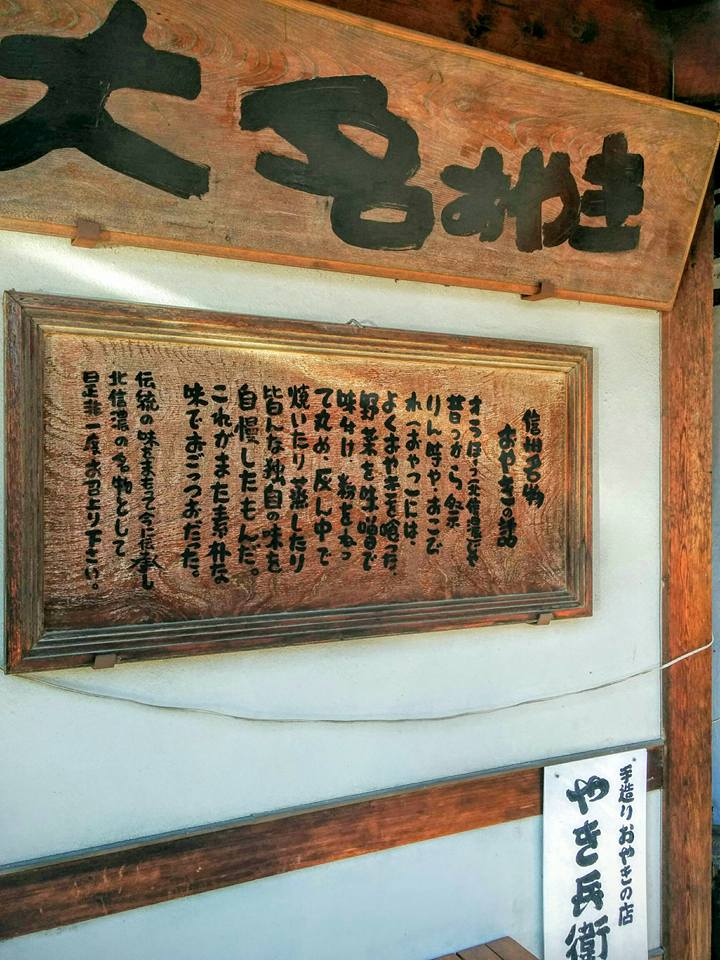 大名おやき
信州名物
おやきの話
オラほう(北信濃)じゃ
昔っから祭
りん時やおこび
れ(おやつ)には、
よくおやきを喰った。
野菜を味噌で
味付け、粉をねっ
て丸め、灰ん中で
焼いたり蒸したり
皆んな独自の味を
自慢したもんだ。
これがまた素朴な
味でおごっつおだった。
伝統の味をまもって今に伝承し
北信濃の名物として
是非一度お召上り下さい。
手造りおやきの店
やき兵衛